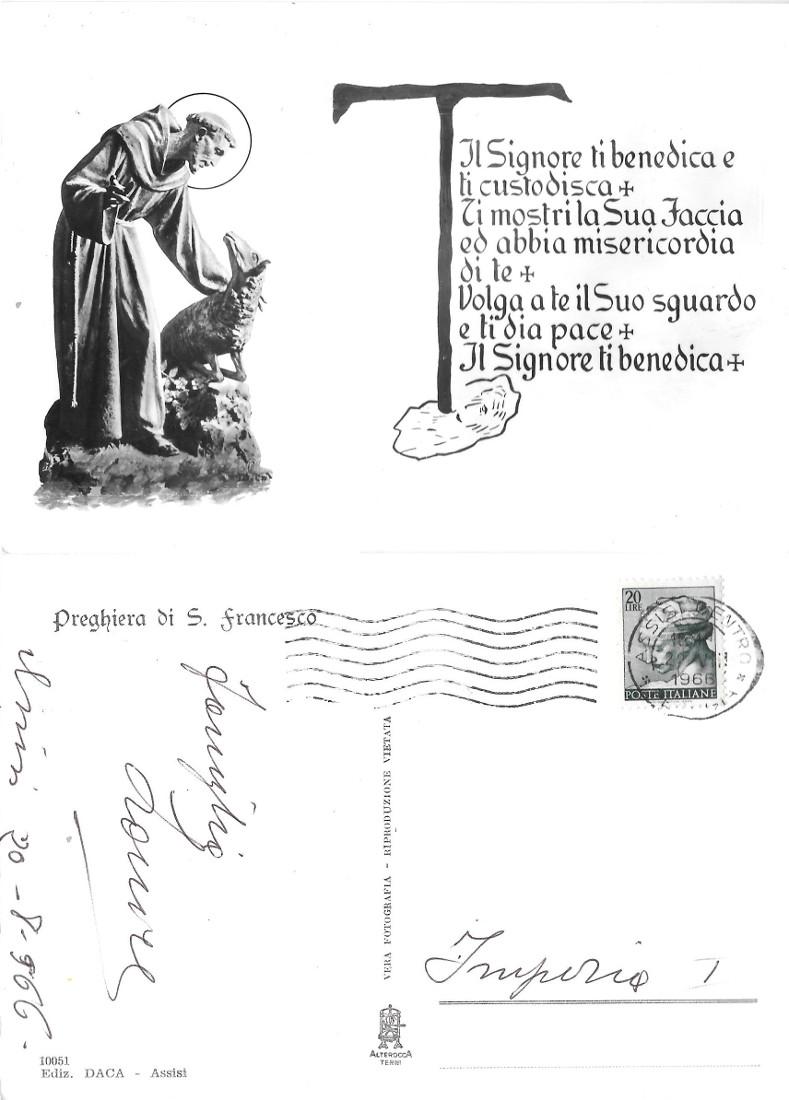 T
Il Signore ti benedica e
ti custodisca +
Ti mostri la Sua Faccia
ed abbia misericordia
di te +
Volga a te il Suo sguardo
e ti dia pace +
Il Signore ti benedica +
Preghiera di S. Francesco
20
LIRE
ASSISI CENTRO
1966
POSTE ITALIANE
Famiglia
20-8-966-
VERA FOTOGRAFIA - RIPRODUZIONE VIETATA
Imperia
ALTEROCCA
TERNI
10051
Ediz. DACA - Assisi